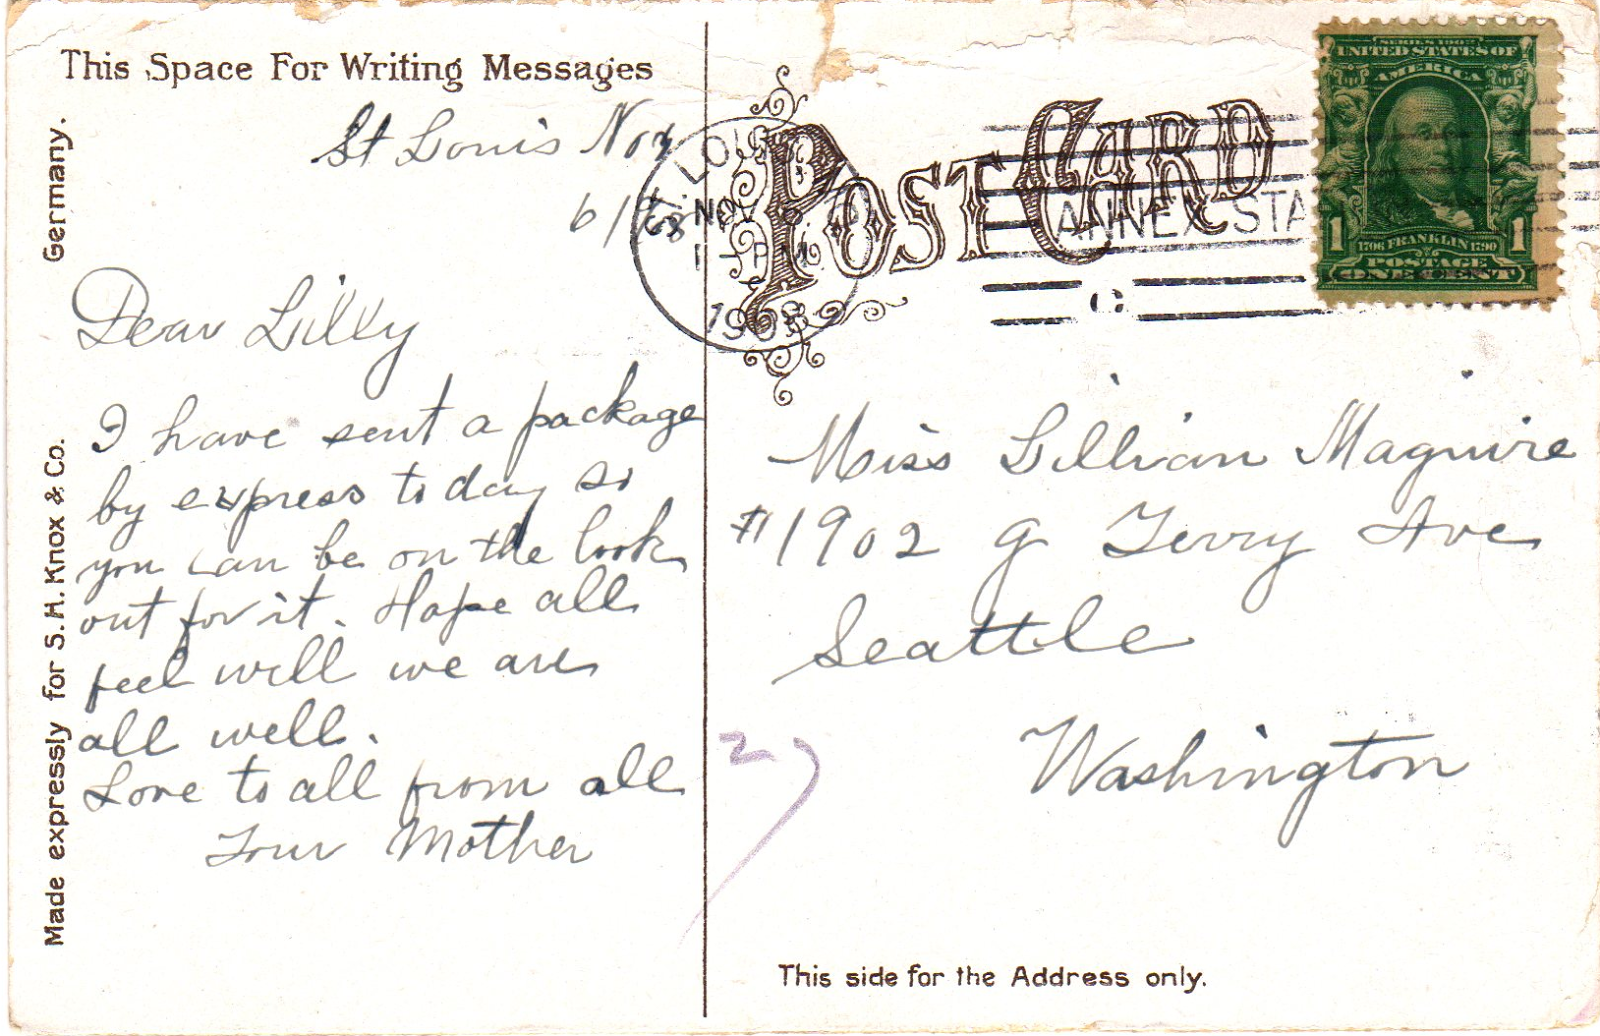 This Space For Writing Messages
St Louis Nov
6/08
Dear Lilly
I have sent a package
by express to day so
you can be on the look
out for it. Hope all
feel well we are
all well.
Love to all from all
Your Mother
Made expressly for S. H. Knox & Co. Germany.
POST CARD
LOUIS
NOV
1908
ANNEX STA
SERIES 1902
UNITED STATES OF
AMERICA
1 1
1706 FRANKLIN 1790
POSTAGE
ONE CENT
Miss Lillian Maguire
#1902 9 Terry Ave
Seattle
Washington
This side for the Address only.